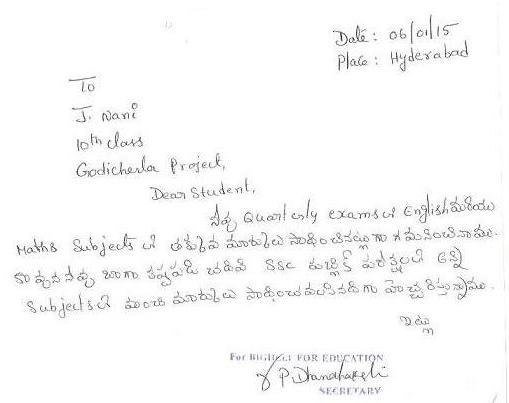 Date: 06/01/15
Place: Hyderabad
To
J. Nani
10th class
Godicherla Project,
Dear Student,
నీవు Quarterly exams లో English మరియు
Maths Subjects లో తక్కువ మార్కులు సాధించినట్లుగా గమనించినాము.
కావున నీవు బాగా కష్టపడి చదివి SSC పబ్లిక్ పరీక్షలలో అన్ని
Subjects లో మంచి మార్కులు సాధించవలసినదిగా హెచ్చరిస్తున్నాము.
ఇట్లు
For FOR EDUCATION
SECRETARY